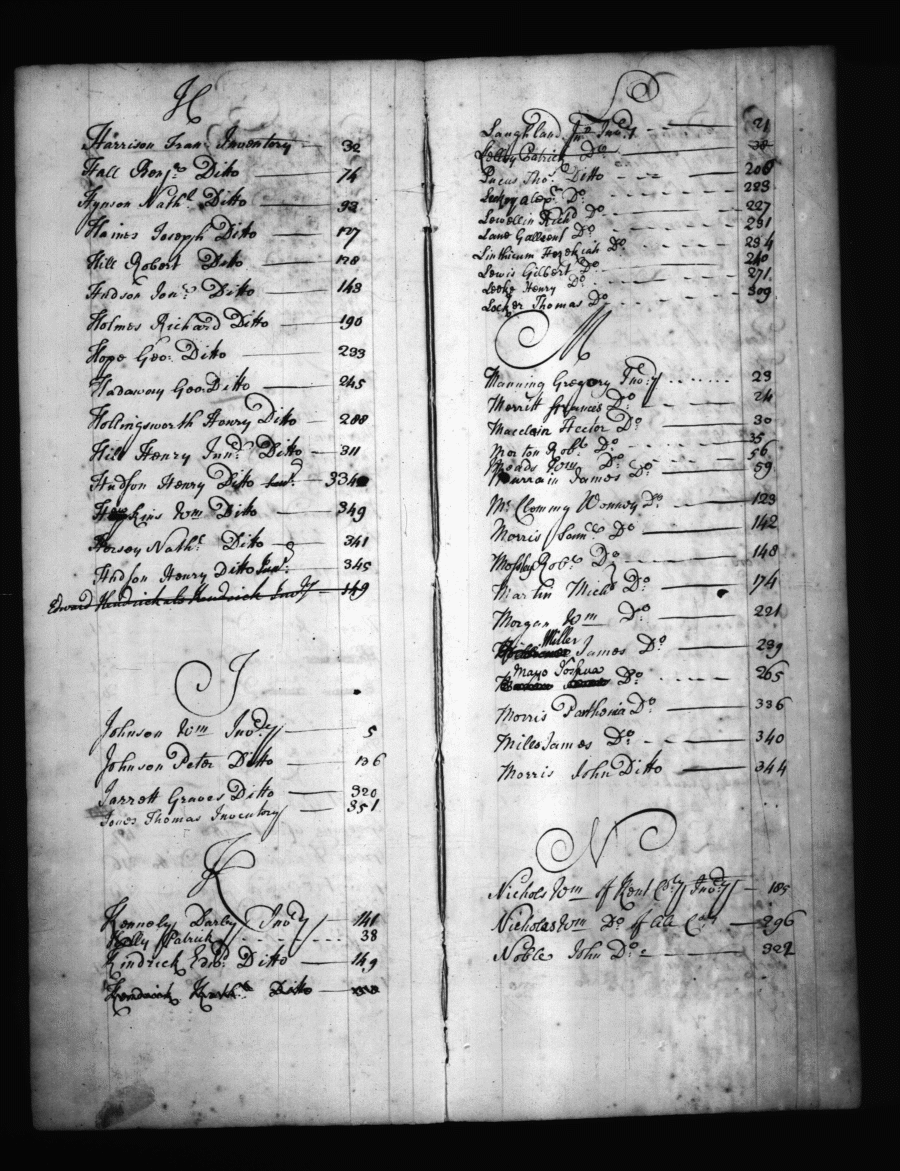 H
Harrison Fran: Inventory 32
Hall Benjn. Ditto 74
Hynson Nathl. Ditto 93
Haines Joseph Ditto 127
Hill Robert Ditto 128
Hudson Jonn. Ditto 143
Holmes Richard Ditto 190
Hope Geo: Ditto 233
Hadaway Geo: Ditto 245
Hollingsworth Henry Ditto 288
Hill Henry Junr. Ditto 311
Hudson Henry Ditto 334
Hopkins Wm Ditto 349
Hersey Nathl. Ditto 341
Hudson Henry Ditto Junr. 345
Edward Kendrick als Kendrick Invty 149
I
Johnson Wm Invdy 5
Johnson Peter Ditto 136
Jarrott Graves Ditto 320
Jones Thomas Inventory 351
K
Kennely Darby Invdy 141
Kelly Patrick 38
Kindrick Edwd. Ditto 149
Kendrick Ditto
L
Laughland Invty 21
Kelly Patrick Do 38
Lucas Thos. Ditto 208
Leakey Alexr. Do 223
Lewellin Richd Do 227
Lane Do 231
Linthicum Hezekiah Do 234
Lewis Gilbert Do 240
Leeke Henry Do 271
Locker Thomas Do 309
M
Manning Gregory Invdy 23
Merritt Frances Do 24
Macclain Hector Do 30
Morton Robt. Do 35
Meads Wm Do 56
Murrain James Do 59
McClemmy Wonney Do 123
Morris Saml. Do 142
Robt. Do 148
Martin Michl Do 174
Morgan Wm Do 221
Miller James Do 239
Mayo Joshua Do 265
Morris Parthenia Do 336
Miles James Do 340
Morris John Ditto 344
N
Nichols Wm of Kent Coty Invdy 185
Nicholas Wm Do of AA Coty 296
Noble John Do 322